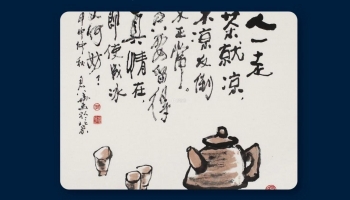 人一走
茶就凉，
不凉反倒
不正常。
只要留得
真情在，
即使成冰
又何妨。